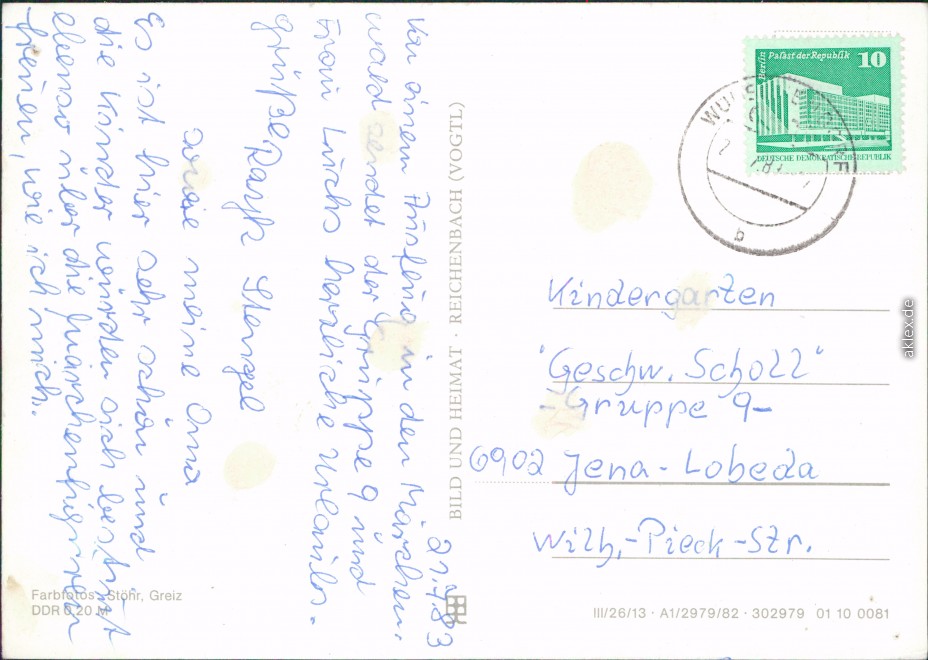 21.7.83
Von einem Ausflug in den Märchen-
wald sendet der Gruppe 9 und
Frau Luchs herzliche Urlaubs-
grüße Rayk Stenzel
sowie meine Oma
Es ist hier sehr schön und
die Kinder würden sich bestimmt
ebenso über die Märchenfiguren
freuen, wie ich mich.
BILD UND HEIMAT · REICHENBACH (VOGTL)
Berlin Palast der Republik 10
DEUTSCHE DEMOKRATISCHE REPUBLIK
b
Kindergarten
"Geschw. Scholl"
-Gruppe 9-
6902 Jena-Lobeda
Wilh.-Pieck-Str.
Farbfotos: Stöhr, Greiz
DDR 0,20 M
III/26/13 · A1/2979/82 · 302979 01 10 0081
aklex.de